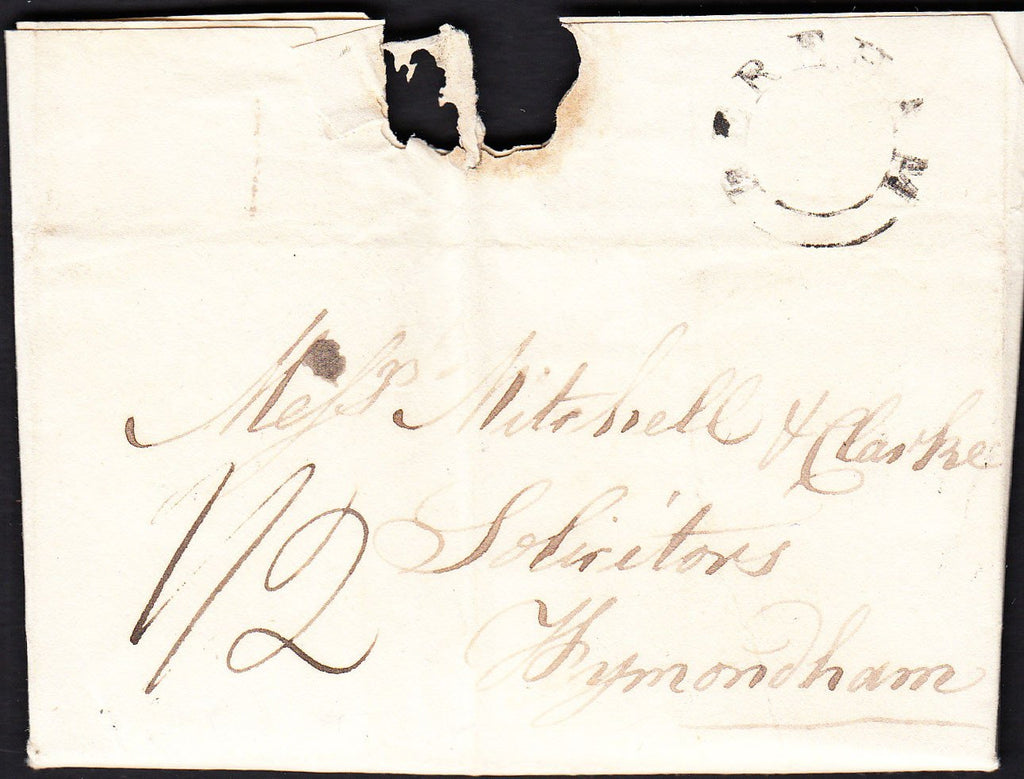 WREXHAM
Messrs Mitchell & Clarke
1/2
Solicitors
Wymondham